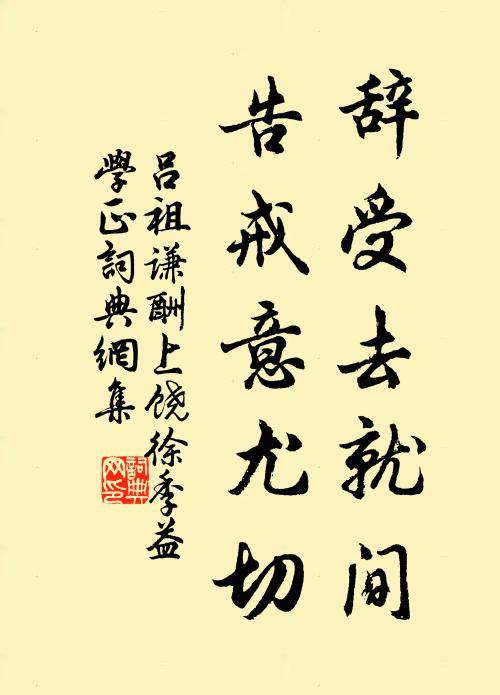 辞受去就间
告戒意尤切
吕祖谦酬上饶徐季益
學正詞典網集
詞典
网印